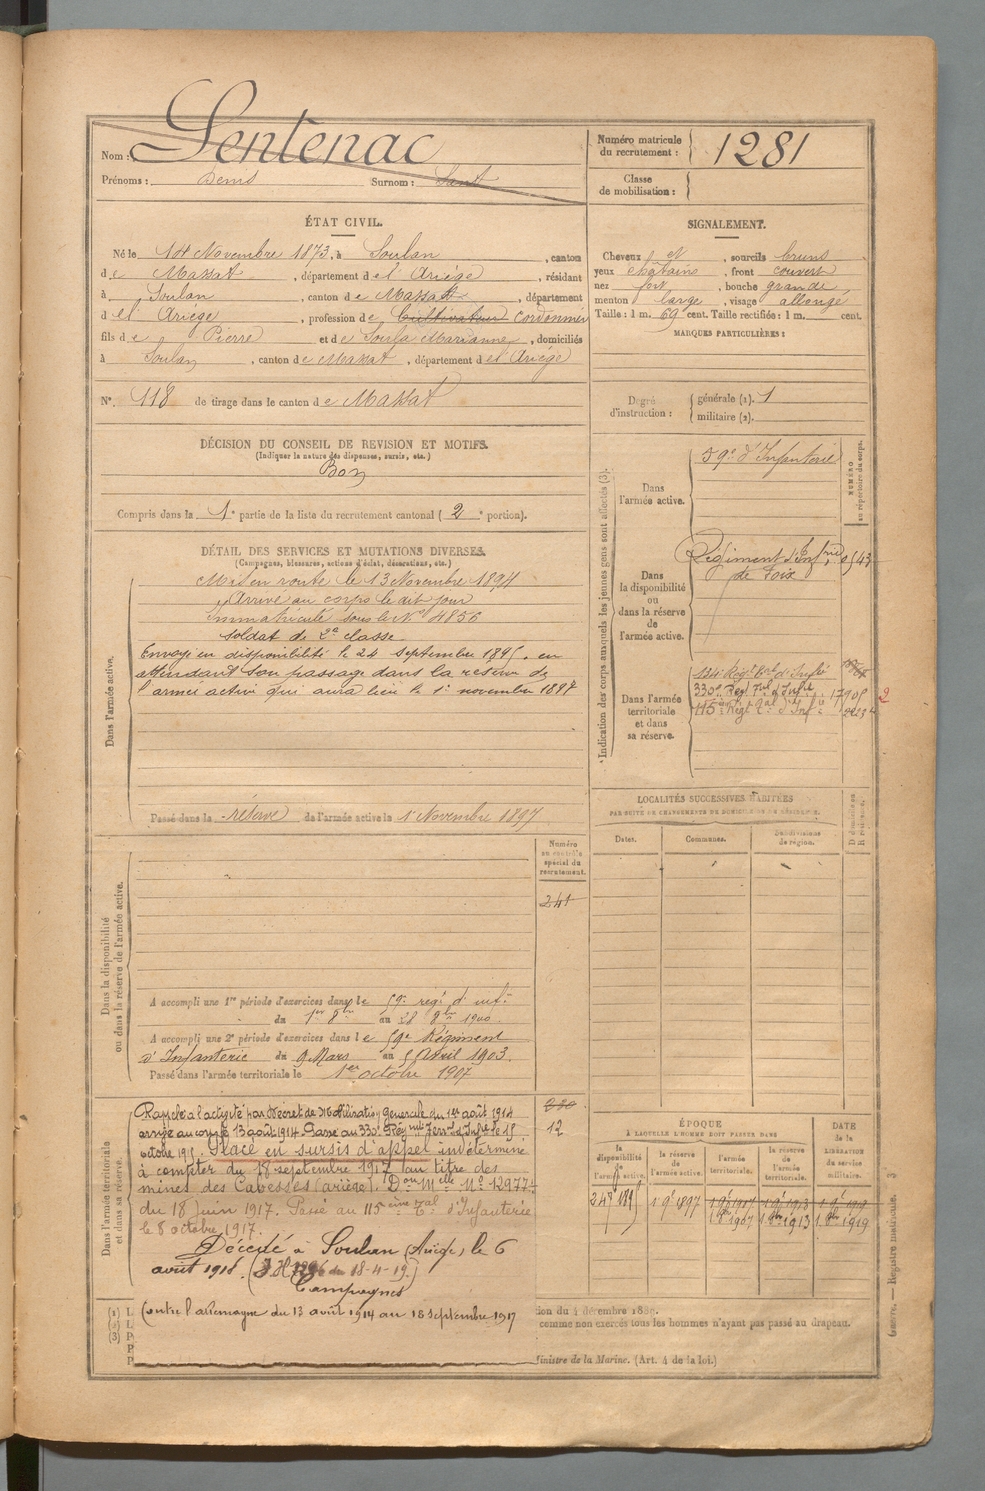 Nom : Sentenac
Prénoms : Denis Surnom :
Numéro matricule du recrutement : 1281
Classe de mobilisation :
ÉTAT CIVIL.
Né le 14 Novembre 1873, à Soulan, canton
de Massat, département de l'Ariège, résidant
à Soulan, canton de Massat, département
de l'Ariège, profession de Cultivateur cordonnier
fils de Pierre et de Soula Marianne, domiciliés
à Soulan, canton de Massat, département de l'Ariège
N° 118 de tirage dans le canton de Massat
SIGNALEMENT.
Cheveux et, sourcils bruns
yeux châtains, front couvert
nez fort, bouche grande
menton large, visage allongé
Taille : 1 m. 69 cent. Taille rectifiée : 1 m. cent.
MARQUES PARTICULIÈRES :
Degré d'instruction : générale (1). 1
militaire (2).
DÉCISION DU CONSEIL DE REVISION ET MOTIFS.
(Indiquer la nature des dispenses, sursis, etc.)
Bon
Compris dans la 1e partie de la liste du recrutement cantonal (2e portion).
DÉTAIL DES SERVICES ET MUTATIONS DIVERSES.
(Campagnes, blessures, actions d'éclat, décorations, etc.)
Dans l'armée active.
Mis en route le 13 Novembre 1894
Arrivé au corps le dit jour
Immatriculé sous le N° 4856
Soldat de 2e classe
Envoyé en disponibilité le 24 septembre 1895, en
attendant son passage dans la réserve de
l'armée active qui aura lieu le 1er novembre 1897
Passé dans la réserve de l'armée active le 1 Novembre 1897
Indication des corps auxquels les jeunes gens sont affectés (3).
NUMÉRO au répertoire du corps.
Dans l'armée active.
59e d'Infanterie
Dans la disponibilité ou dans la réserve de l'armée active.
Régiment d'Infrie 0543
de Foix
Dans l'armée territoriale et dans sa réserve.
134e Régt Tal d'Infie
330e Regt Tal d'Infie 17905
115e Régt Tal d'Infie
2
LOCALITÉS SUCCESSIVES HABITÉES
PAR SUITE DE CHANGEMENTS DE DOMICILE OU DE RÉSIDENCE.
Dates. Communes. Subdivisions de région.
Dans la disponibilité ou dans la réserve de l'armée active.
Numéro au contrôle spécial du recrutement.
241
A accompli une 1re période d'exercices dans le 59e régt d'inf.
du 1er 8bre au 28 8bre 1900
A accompli une 2e période d'exercices dans le 59e Régiment
d'Infanterie du 9 Mars au 5 Avril 1903.
Passé dans l'armée territoriale le 1er octobre 1907
Dans l'armée territoriale et dans sa réserve.
Rappelé à l'activité par Décret de Mobilisation générale du 1er août 1914
arrivé au corps le 13 août 1914. Passé au 330e Régiment Terral d'Infie le 15
octobre 1915. Placé en sursis d'appel indéterminé
à compter du 18 septembre 1917 au titre des
mines des Cabesses (ariège). Don Mlle No 12977
du 18 juin 1917. Passé au 115ème Tal d'Infanterie
le 8 octobre 1917.
Décédé à Soulan (Ariège) le 6
août 1918. du 18-4-19.)
Campagnes
Contre l'allemagne du 13 août 1914 au 18 septembre 1917
230
12
ÉPOQUE
À LAQUELLE L'HOMME DOIT PASSER DANS
la disponibilité de l'armée active. la réserve de l'armée active. l'armée territoriale. la réserve de l'armée territoriale.
DATE de la LIBÉRATION du service militaire.
1 8bre 1907 1 8bre 1913 1 8bre 1919
(1) L
(2) L
(3) P
P
P
tion du 4 décembre 1889.
comme non exercés tous les hommes n'ayant pas passé au drapeau.
Ministre de la Marine. (Art. 4 de la loi.)
Guerre. — Registre matricule. 3